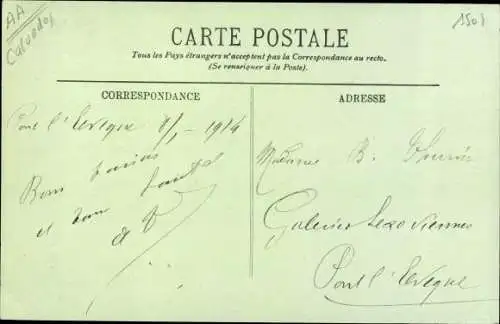 AA
Calvados
1501
CARTE POSTALE
Tous les Pays étrangers n'acceptent pas la Correspondance au recto.
(Se renseigner à la Poste).
CORRESPONDANCE
ADRESSE
Pont l'Evêque 8/1 - 1914
Bons
et bonne santé
Madame B.
Galeries Lexoviennes
Pont l'Evêque